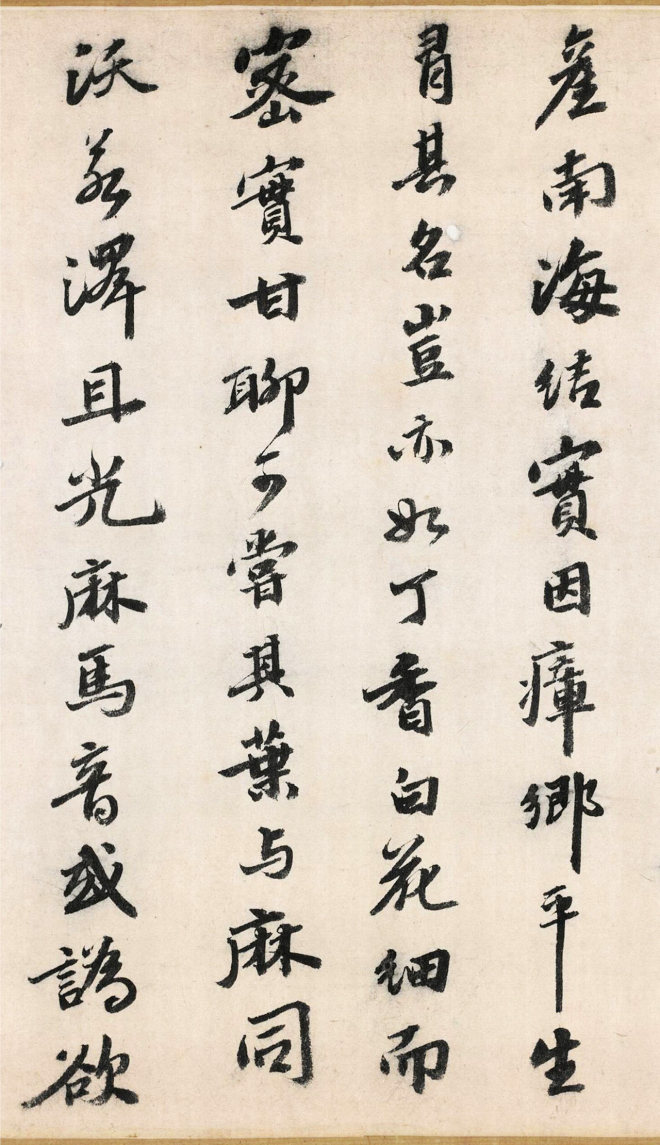 產南海結實因瘴鄉平生
肎其名豈亦如丁香白花細而
密實甘聊可嘗其葉与麻同
沃若澤且光麻馬音或譌欲